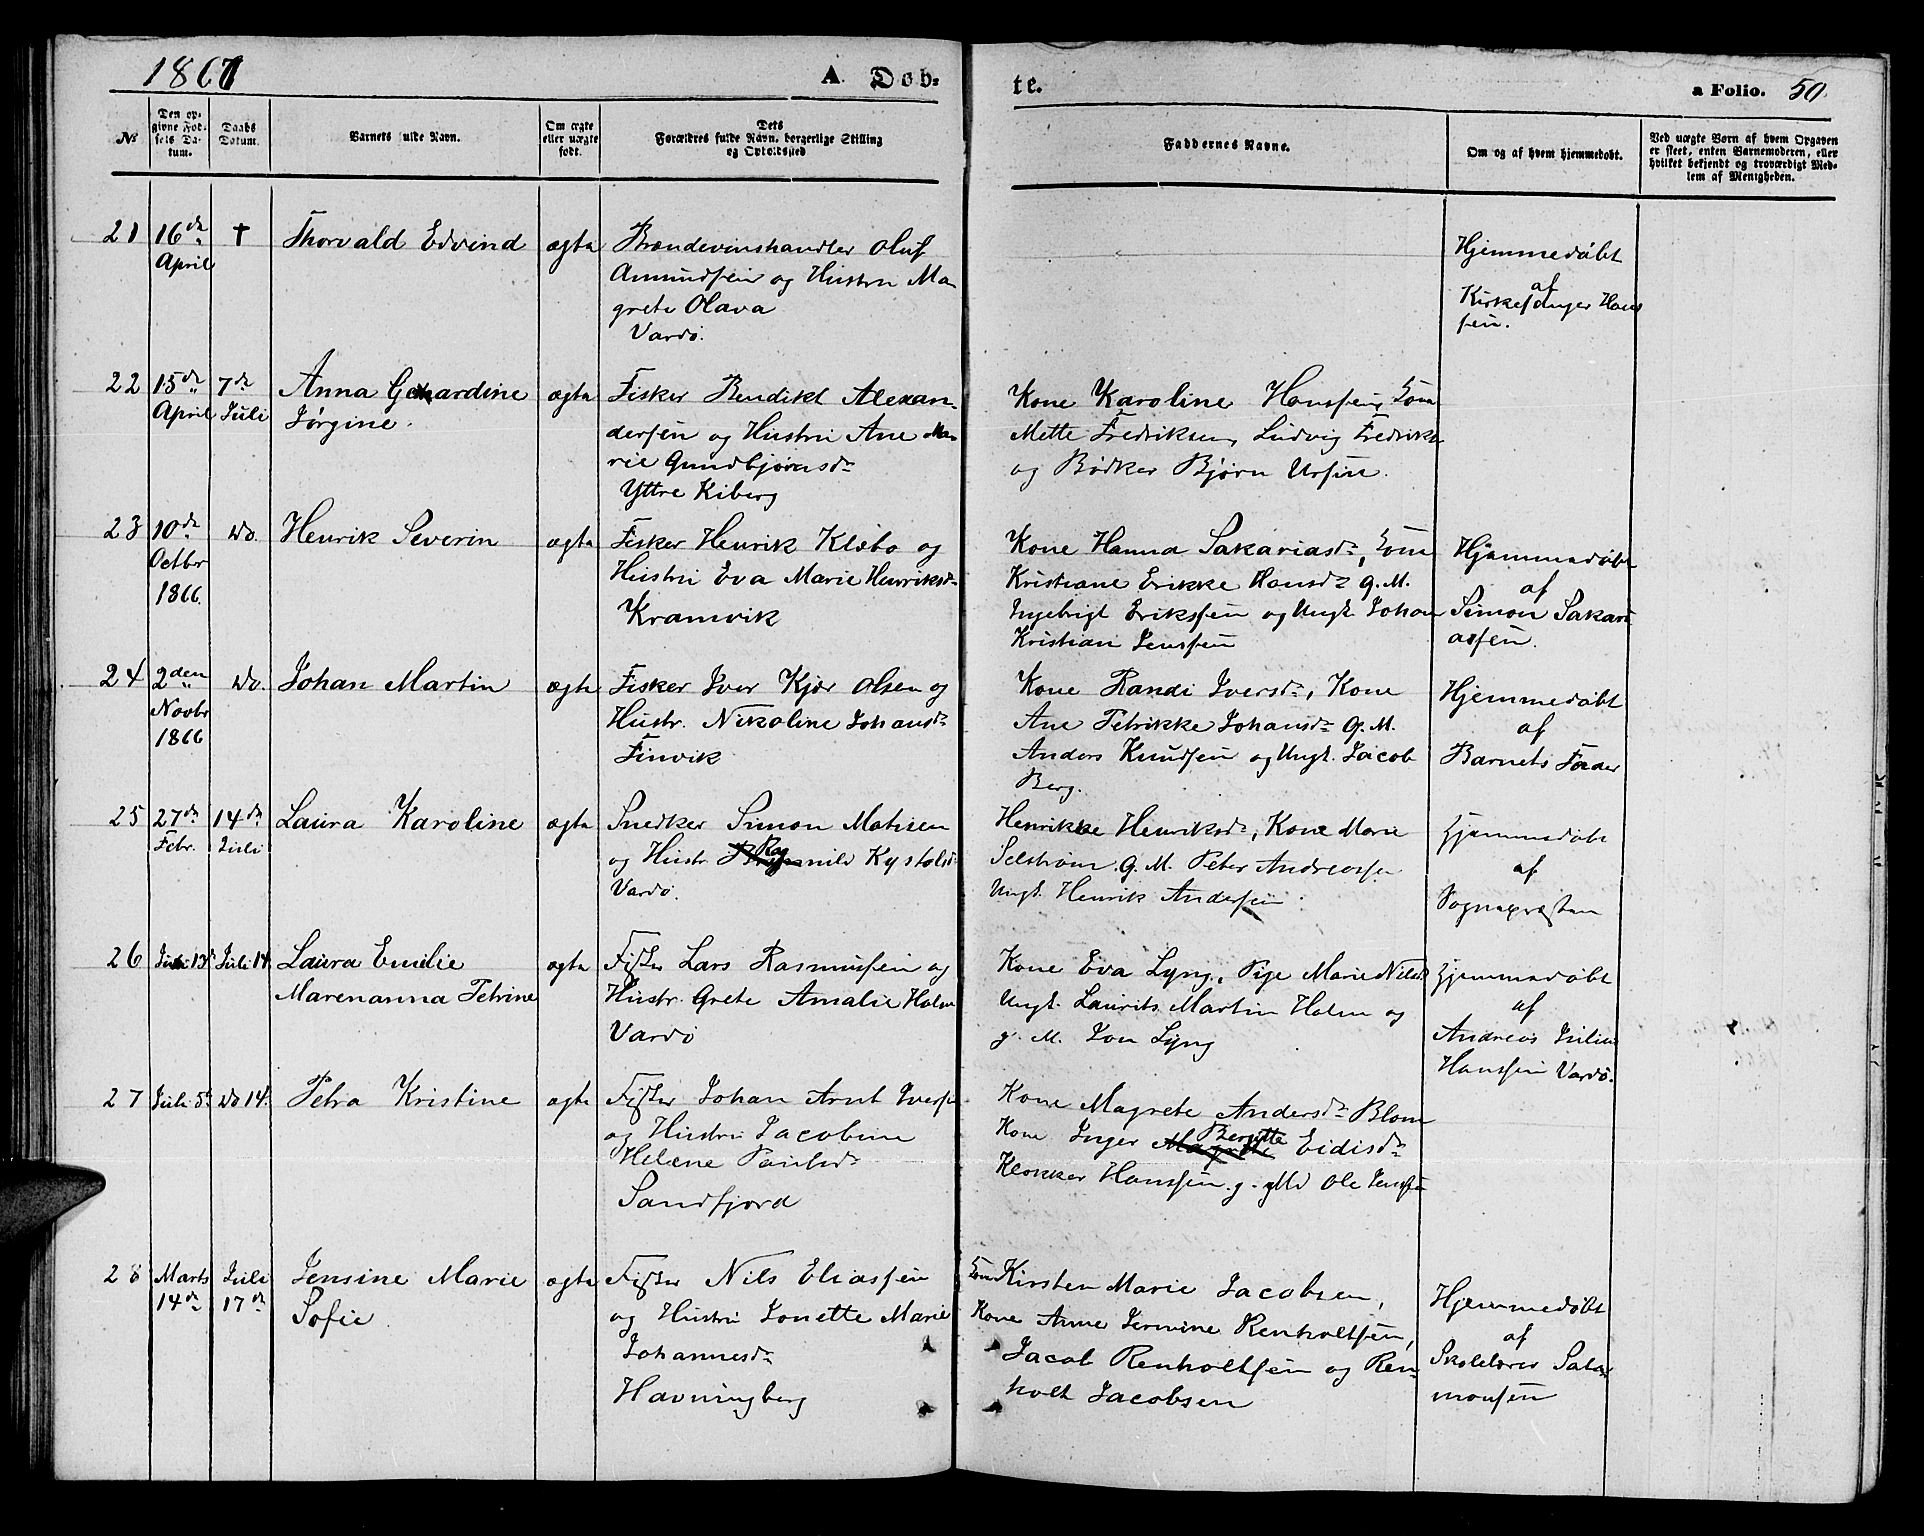 1867
A. Døb-
te.
a Folio. 50.
№
Den opgivne Fødsels Datum.
Daabs Datum.
Barnets fulde Navn.
Om ægte eller uægte født.
Dets Forældres fulde Navn, borgerlige Stilling og Opholdssted
Faddernes Navne.
Om og af hvem hjemmedøbt.
Ved uægte Børn af hvem Opgaven er skeet, enten Barnemoderen, eller hvilket bekjendt og troværdigt Medlem af Menigheden.
21 16de † Thorvald Edvind ægte Brændevinshandler Oluf
April Amundsen og Hustru Ma
grete Olava
Vardø.
Hjemmedøbt
af
Kirkesanger Hans
sen.
22 15de 7de Anna Gerhardine ægte Fisker Bendikt Alexan-
April Juli Jørgine. dersen og Hustru Ane Ma-
rie Gundbjørnsdr
Yttre Kiberg
Kone Karoline Hanssen,
Mette Fredriksen, Ludvig Fredriks
og Bødker Bjørn Ursin.
23 10de Do. Henrik Severin ægte Fisker Henrik Klæbo og
Octbr Hustru Eva Marie Henriksdr
1866. Kramvik
Kone Hanna Sakariasdr,
Kristiane Erikke Hansdr G.M.
Ingebrigt Erikssen og Ungk. Johan
Kristian Jenssen
Hjemmedøbt
af
Simon Sakari
assen.
24 2den Do. Johan Martin ægte Fisker Iver Kjær Olsen og
Novbr Hustr. Nikoline Johansdr
1866 Finvik
Kone Randi Iversdr, Kone
Ane Petrikke Johansdr G.M.
Anders Knudsen og Ungk. Jacob
Berg.
Hjemmedøbt
af
Barnets Fader
25 27de 14de Laura Karoline ægte Snedker Simon Mathisen
Febr. Juli og Hustr. Ragnild
Vardø.
Henrikke Henriksdr, Kone Marie
Selstrøm. G.M. Peter Andreassen
Ungk. Henrik Andersen
Hjemmedøbt
af
Sognepræsten
26 13de Juli 14 Laura Emilie ægte Fisker Lars Rasmussen og
Marenanna Petrine Hustr. Grete Amalie Holm
Vardø
Kone Eva Lyng, Pige Marie Nilsdr
Ungk. Laurits Martin Holm og
g. M. Jon Lyng
Hjemmedøbt
af
Andreas Julius
Hanssen Vardø.
27 Juli 5te Do 14. Petra Kristine ægte Fisker Johan Arnt Iversen
og Hustru Jacobine
Helene Paulsdr
Sandfjord
Kone Magrete Andersdr Blom
Kone Inger Bergitte Eidisdr
Klokker Hanssen. g. M Ole Jenssen
28 Marts Juli Jensine Marie ægte Fisker Nils Eliassen
14de 17de Sofie og Hustru Jonette Marie
Johannesdr
Havningberg
Kirsten Marie Jacobsen,
Kone Anne Jermine Renholtsen,
Jacob Renholtsen og Ren-
holt Jacobsen
Hjemmedøbt
af
Skolelærer Salo
monsen